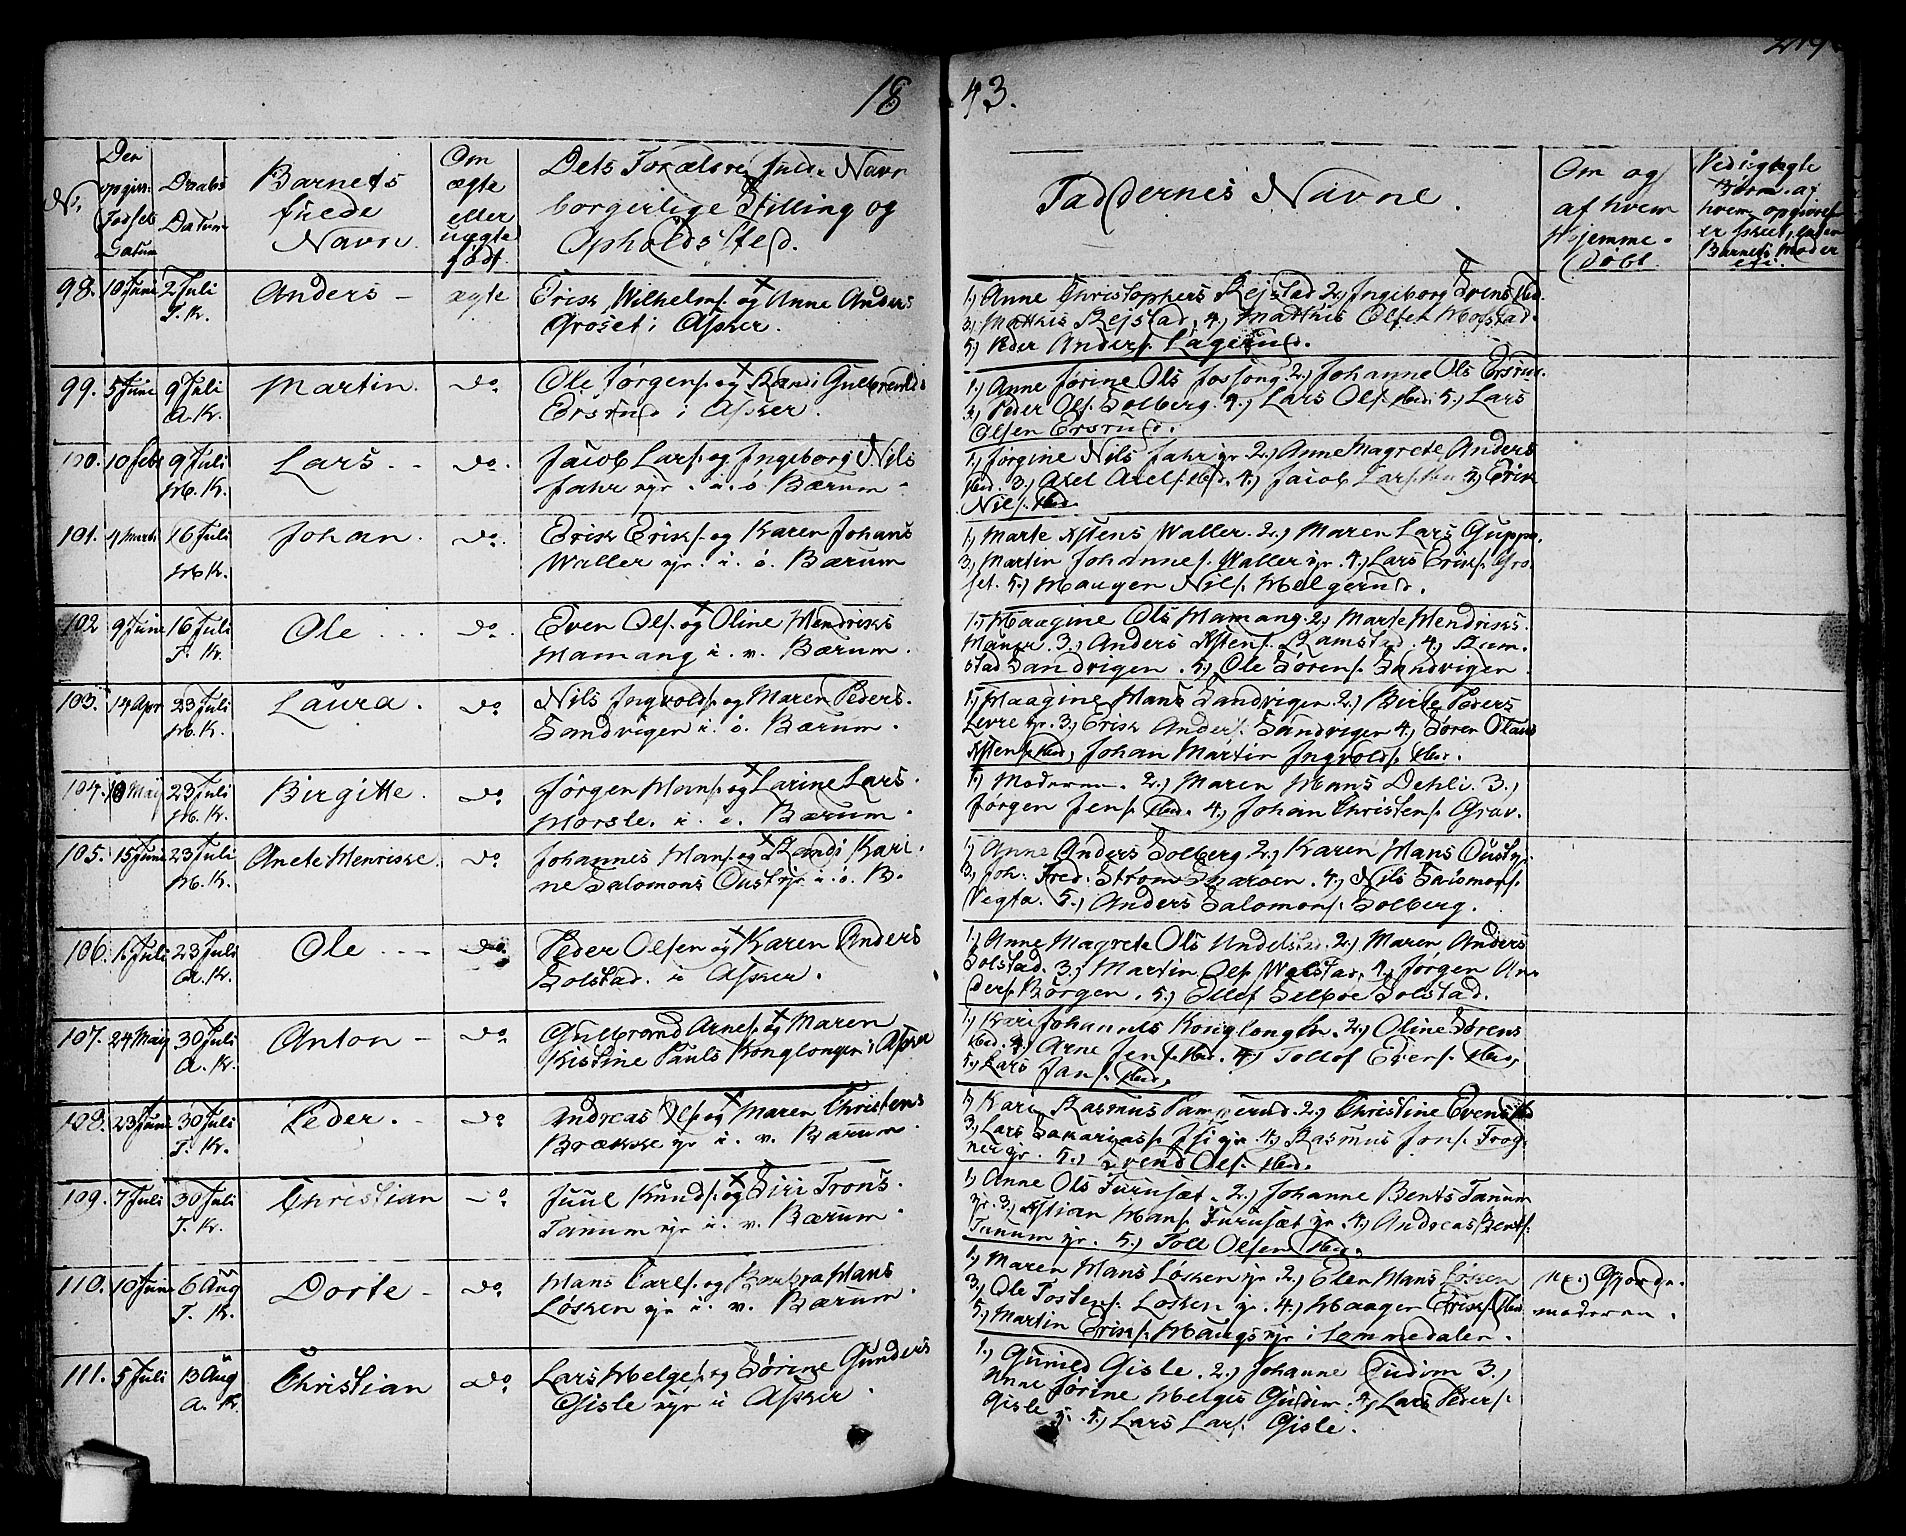 18 43.
No
Den opgivne Fødsels Datum
Daabs Datum
Barnets fulde Navn
Om ægte eller uægte født.
Dets Forældres fulde Navn borgerlige Stilling og Opholds Sted.
Faddernes Navne.
Om og af hvem Hjemme-Døbt.
98. 10 Juni 2 Juli T. K. Anders – ægte
Erik Wilhelms. og Anne Anders
Groset i Asker.
1.) Anne Christophers Rejstad 2.) Ingeborg Svens ibid.
3.) Mathis Rejstad. 4.) Mathis Olsen Hofstad.
5.) Peder Anders. Lagerud.
99. 5 Juni 9 Juli A. K. Martin. do
Ole Jørgens. og Randi Gulbrands
Ersrud i Asker.
1.) Anne Jørine Ols 2.) Johanne Ols Ersrud.
3.) Peder Ols. Solberg. 4.) Lars Ols. ibid. 5.) Lars
Olsen Ersrud.
100. 10 Febr 9 Juli H. K. Lars. do.
Jacob Lars. og Ingeborg Nils
Jahr ejr. i. ø. Bærum.
1.) Jørgine Nils Jahr ejr. 2.) Anne Magrete Anders
ibid. 3.) Axel Axels. ibid. 4.) Jacob Lars. 5.) Erik
Nils. ibid.
101. 4 Marts 16 Juli H. K. Johan. do.
Erik Eriks. og Karen Johans
Waller ejr. i. ø. Bærum
1.) Marte Astens Waller. 2.) Maren Lars Guppe.
3.) Martin Johannes. Waller ejr. 4.) Lars Eriks. Gro-
set. 5.) Haagen Nils. Helgerud.
102 9 Juni 16 Juli T. K. Ole do.
Even Ols. og Oline Hendriks
Hamang i. v. Bærum.
1.) Haagine Ols Hamang. 2.) Marte Hendriks.
3.) Anders Astens. Ramstad. 4.) Ram-
stad Sandvigen. 5.) Ole Sørens. Sandvigen.
103. 14 Apr 23 Juli H. K. Laura. do
Nils Ingvolds. og Maren Peders.
Sandvigen i. ø. Bærum.
1.) Haagine Hans Sandvigen 2.) Birte Peders
Levre ejr. 3.) Erik Anders. Sandvigen 4.) Søren Olaus
Astens. ibid. Johan Martin Ingvolds. ibid.
104. Maij 23 Juli H. K. Birgitte. do
Jørgen Hans. og Larine Lars.
Horsle. i. v. Bærum.
1.) Moderen. 2.) Maren Hans Dehli. 3.)
Jørgen Jens. ibid. 4.) Johan Christens. Grav.
105. 15 Juni 23 Juli H. K. Anete Henrikke. do
Johannes Hans. og Randi Kari-
ne Salomons Oust ejr. i. ø. B.
1.) Anne Anders Solberg 2.) Karen Hans Oust ejr.
3.) Joh. Fred. Strøm Snarøen. 4.) Nils Salomons.
5.) Anders Salomons. Solberg.
106. 1 Juli 23 Juli A. K. Ole do.
Peder Olsen og Karen Anders
Solstad. i Asker.
1.) Anne Magrete Ols Undelstad. 2.) Maren Anders
Solstad. 3.) Martin Ols. Walstad, 4.) Jørgen An-
ders. Borgen. 5.) Ellef Solstad.
107. 24 Maij 30 Juli A. K. Anton – do
Gulbrand Arnes. og Maren
Kistine Pauls Konglongen i Asker
1.) Kari Johannes Konglongen. 2.) Oline Sørens
ibid. 3.) Arne Jens. ibid. 4.) Tollof Evens. ibid.
5.) Lars Jans. ibid.
108. 23 Juni 30 Juli T. K. Peder. do
Andreas Ols. og Maren Christens
Brække ejr i. v. Bærum.
1.) Kari Rasmus Pammerud. 2.) Christine Evens ibid
3.) Lars Sakarias. 4.) Rasmus Jons. Frog-
ner ejr. 5.) Svend Ols. ibid.
109. 7 Juli 30 Juli T. K. Christian do
Juul Knuds. og Siri Trons.
Tanum ejr i. v. Bærum.
1.) Anne Ols Furuset. 2.) Johanne Bents Tanum
ejr. 3.) Astian Hans. Furuset ejr. 4.) Andreas Bents.
Tanum ejr. 5.) Toll Olsen ibid.
110. 10 Juni 6 Aug T. K. Dorte – do
Hans Carls. og Barbra Hans
Løsken ejr i. v. Bærum.
1.) Maren Hans Løsken ejr. 2.) Elen Hans Løsken
3.) Ole Tostens. Løsken ejr. 4.) Haagen Eriks. ibid.
5.) Martin Eriks. Haugs ejr i Lommedalen.
af Gjorde-
moderen.
111. 5 Juli 13 Aug A. K. Christian do
Lars Helges. og Sørine Gunders
Gisle ejr i Asker.
1.) Gunild Gisle. 2.) Johanne Gudim 3.)
Anne Jørine Helgis Gudim. 4.) Lars Peders.
Gisle 5.) Lars Lars. Gisle.